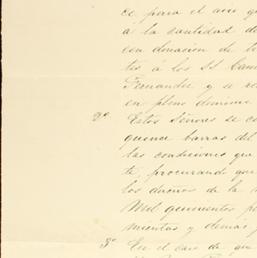 ce para el caso q
á la cantidad de
con donacion de lo
tes á los SS. Cam
Fernandez y se re
en pleno dominio
2º Estos Señores se co
quince barras del
las condiciones que
te, procurando que
los dueños de la
Mil quinientos p
mientos y demás
3º En el caso de que